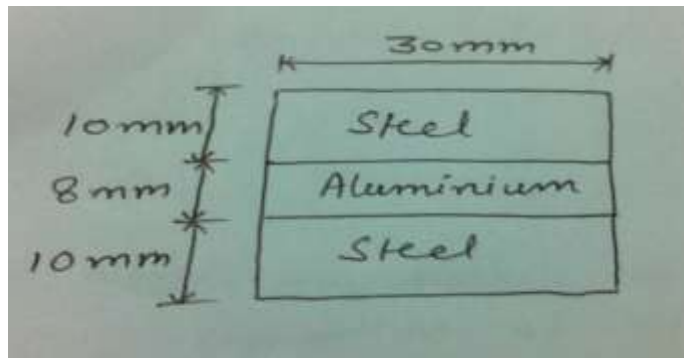 30mm
10mm
Steel
8mm
Aluminium
10mm
Steel